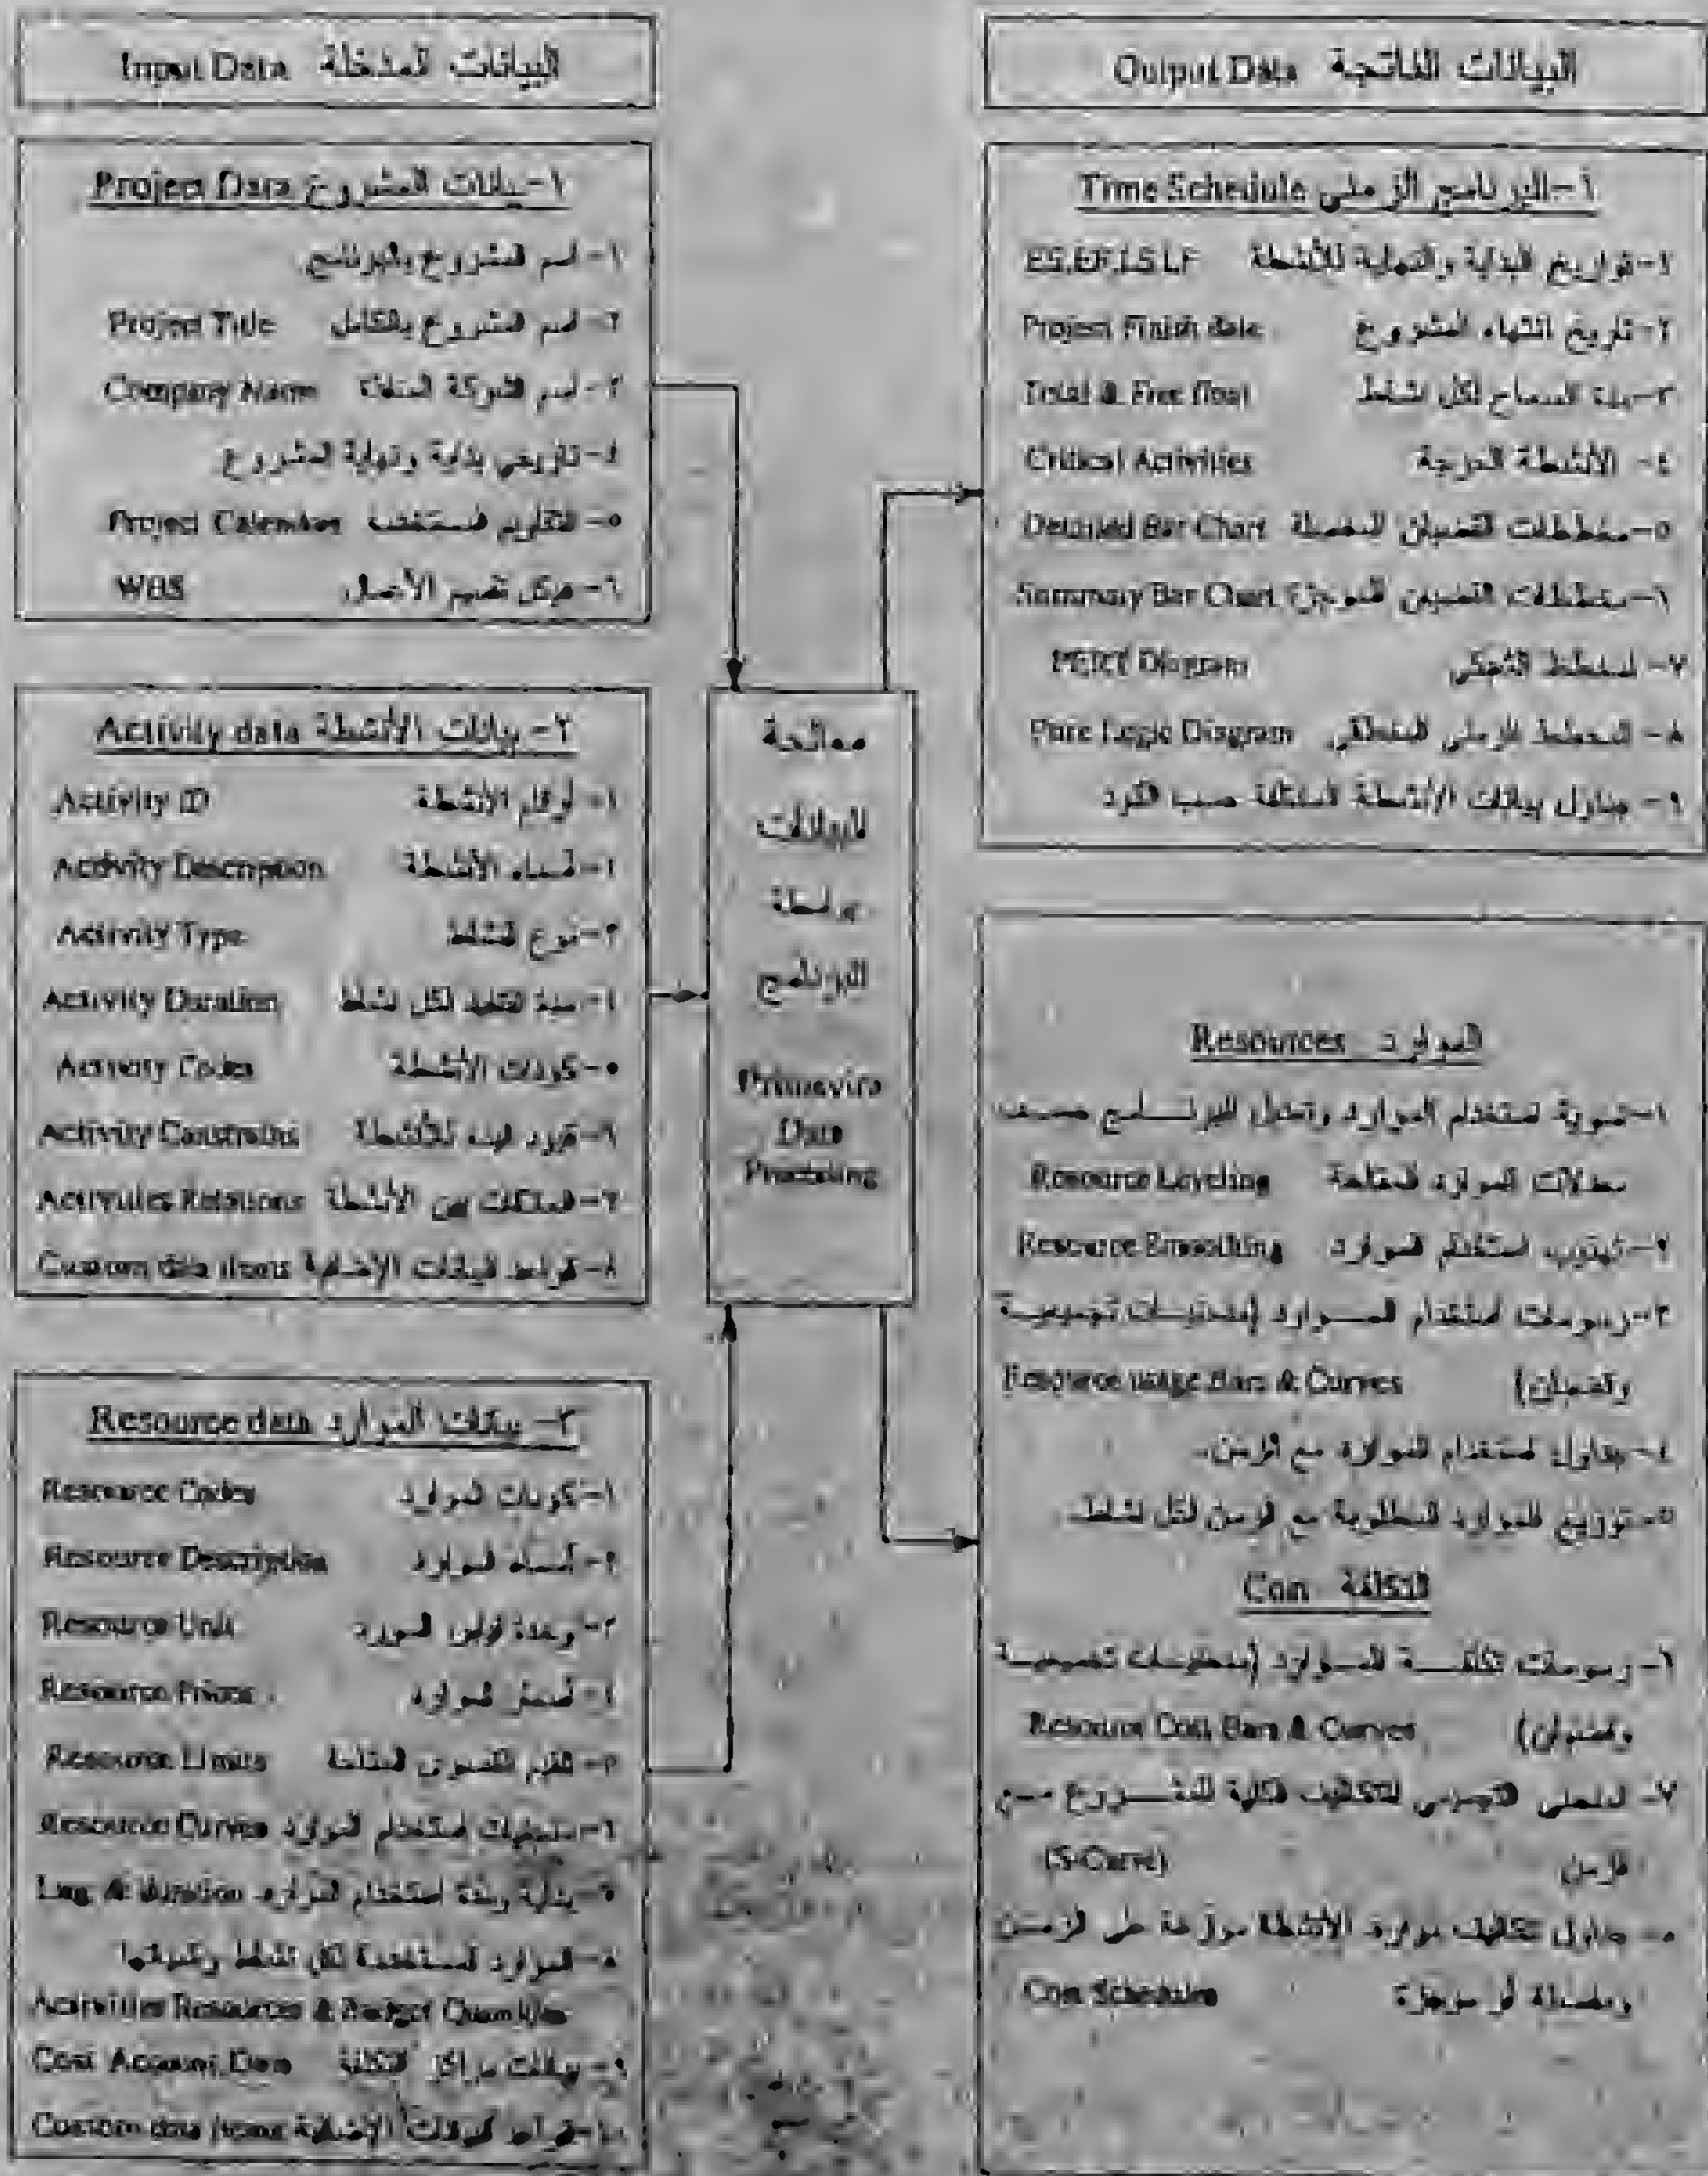 البيانات المدخلة Input Data
١- بيانات المشروع Project Data
١- اسم المشروع بالبرنامج
٢- اسم المشروع بالكامل Project Title
٣- اسم الشركة المنفذة Company Name
٤- تاريخي بداية ونهاية المشروع
٥- التقاويم المستخدمة Project Calendars
٦- هيكل تقسيم الأعمال WBS
٢- بيانات الأنشطة Activity data
١- أرقام الأنشطة Activity ID
٢- أسماء الأنشطة Activity Description
٣- نوع النشاط Activity Type
٤- مدة التنفيذ لكل نشاط Activity Duration
٥- كودات الأنشطة Activity Codes
٦- قيود الأنشطة Activity Constrains
٧- العلاقات بين الأنشطة Activities Relations
٨- البيانات الإضافية Custom data items
٣- بيانات الموارد Resource data
١- كودات الموارد Resource Codes
٢- أسماء الموارد Resource Description
٣- وحدة المورد Resource Unit
٤- أسعار الموارد Resource Prices
٥- القيم القصوى المتاحة Resource Limits
٦- منحنيات استخدام الموارد Resource Curves
٧- بداية ومدة استخدام الموارد Lag & duration
٨- الموارد المستخدمة لكل نشاط وكمياتها
Activities Resources & Budget Quantities
٩- بيانات مراكز التكلفة Cost Account Data
١٠- البيانات الإضافية Custom data items
معالجة
البيانات
بواسطة
البرنامج
Primavira
Data
Processing
البيانات الناتجة Output Data
أ- البرنامج الزمني Time Schedule
١- تواريخ البداية والنهاية للأنشطة ES,EF,LS,LF
٢- تاريخ انتهاء المشروع Project Finish date
٣- مدة السماح لكل نشاط Total & Free float
٤- الأنشطة الحرجة Critical Activities
٥- مخططات القضبان المفصلة Detailed Bar Chart
٦- مخططات القضبان الموجزة Summary Bar Chart
٧- المخطط الشبكي PERT Diagram
٨- المخطط الزمني المنطقي Pure Logic Diagram
٩- جداول بيانات الأنشطة المختلفة حسب الكود
الموارد Resources
١- تسوية استخدام الموارد وتعديل البرنامج حسب
معدلات الموارد المتاحة Resource Leveling
٢- تهذيب استخدام الموارد Resource Smoothing
٣- رسومات استخدام الموارد (منحنيات تجميعية
وقضبان) Resource usage Bars & Curves
٤- جداول استخدام الموارد مع الزمن.
٥- توزيع الموارد المطلوبة مع الزمن لكل نشاط.
التكلفة Cost
٦- رسومات تكلفة الموارد (منحنيات تجميعية
وقضبان) Resource Cost Bars & Curves
٧- المنحنى التجميعي للتكاليف الكلية للمشروع مع
الزمن (S-Curve)
٨- جداول تكاليف موارد الأنشطة موزعة على الزمن
ومفصلة أو موجزة Cost Schedules